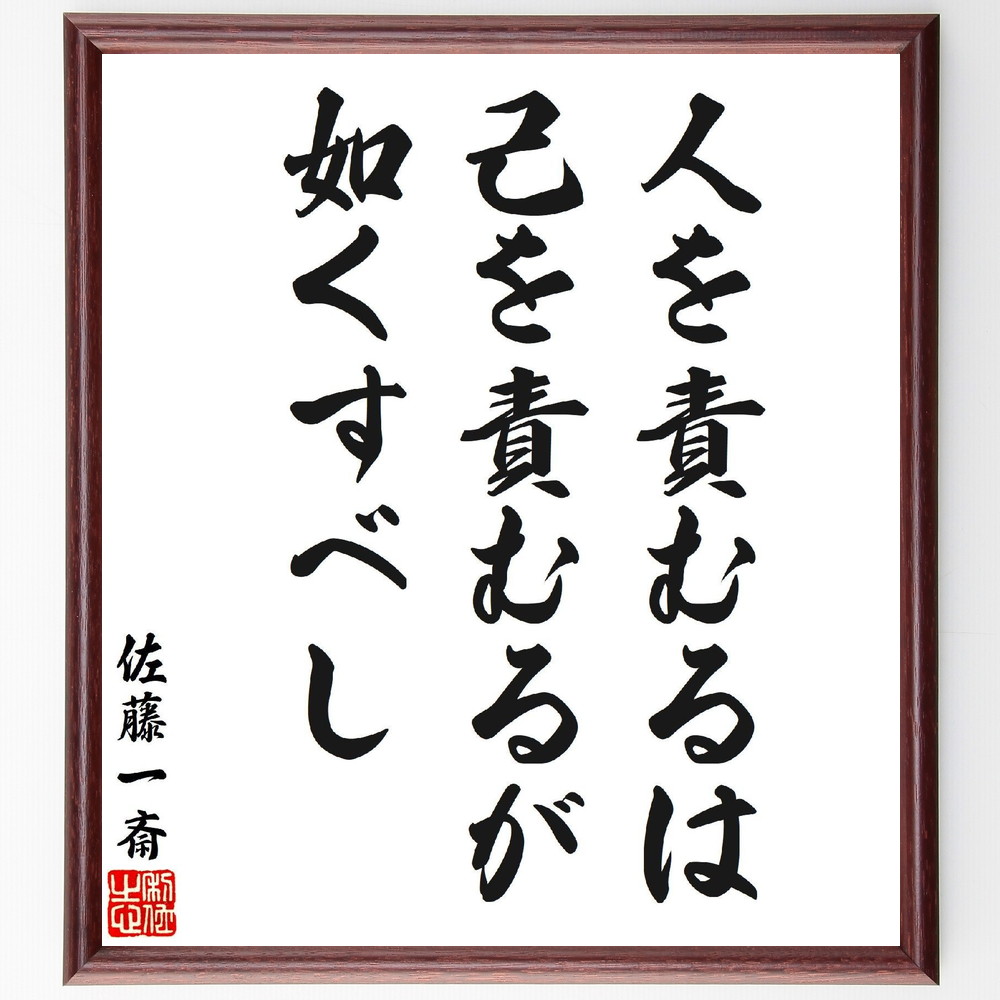 人を責むるは
己を責むるが
如くすべし
佐藤一斎